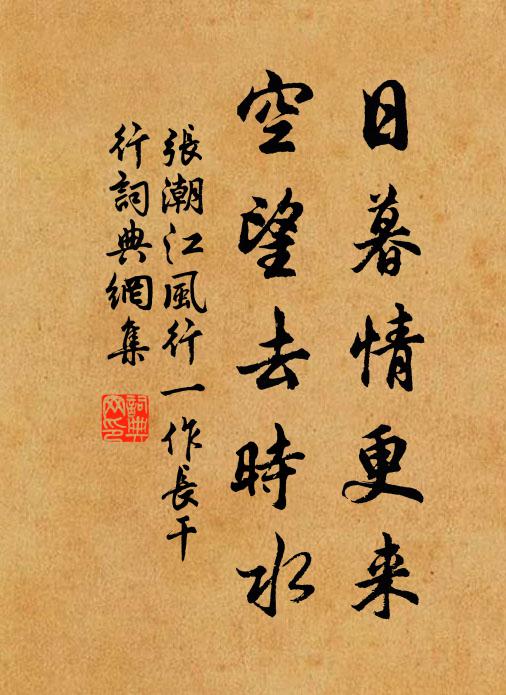 日暮情更来
空望去時水
張潮江風行一作長干
行詞典網集
詞典
网印